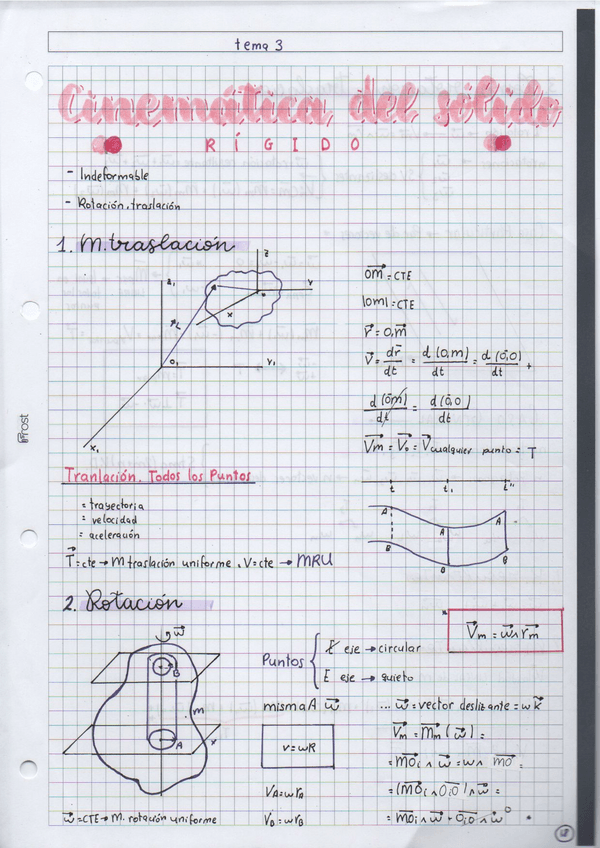 tema 3
Cinemática del sólido
RÍGIDO
- Indeformable
- Rotación, traslación
1. M. traslación
z
z₁
Y
x
r
O₁
Y₁
X₁
OM = CTE
|OM| = CTE
r = O₁m
V = dr/dt = d(O₁m)/dt = d(O₁O)/dt +
d(Om)/dt = d(O₁O)/dt
Vm = V₀ = V cualquier punto = T
Tranlación. Todos los Puntos
= trayectoria
= velocidad
= aceleración
T = cte → M traslación uniforme, V = cte → MRU
t t₁ t''
A A A
B B B
Prost
2. Rotación
w
B
m
A
x
Puntos { ∉ eje → circular
E eje → quieto
* Vm = w ∧ rm
misma A w ... w = vector deslizante = w k
v = wR
Vm = Mm (w) =
= mO₁ ∧ w = w ∧ mO =
VA = w rA
= (mO₁ ∧ O₁O) ∧ w =
VB = w rB
= mO₁ ∧ w + O₁O ∧ w ⁰
w = CTE → M. rotación uniforme